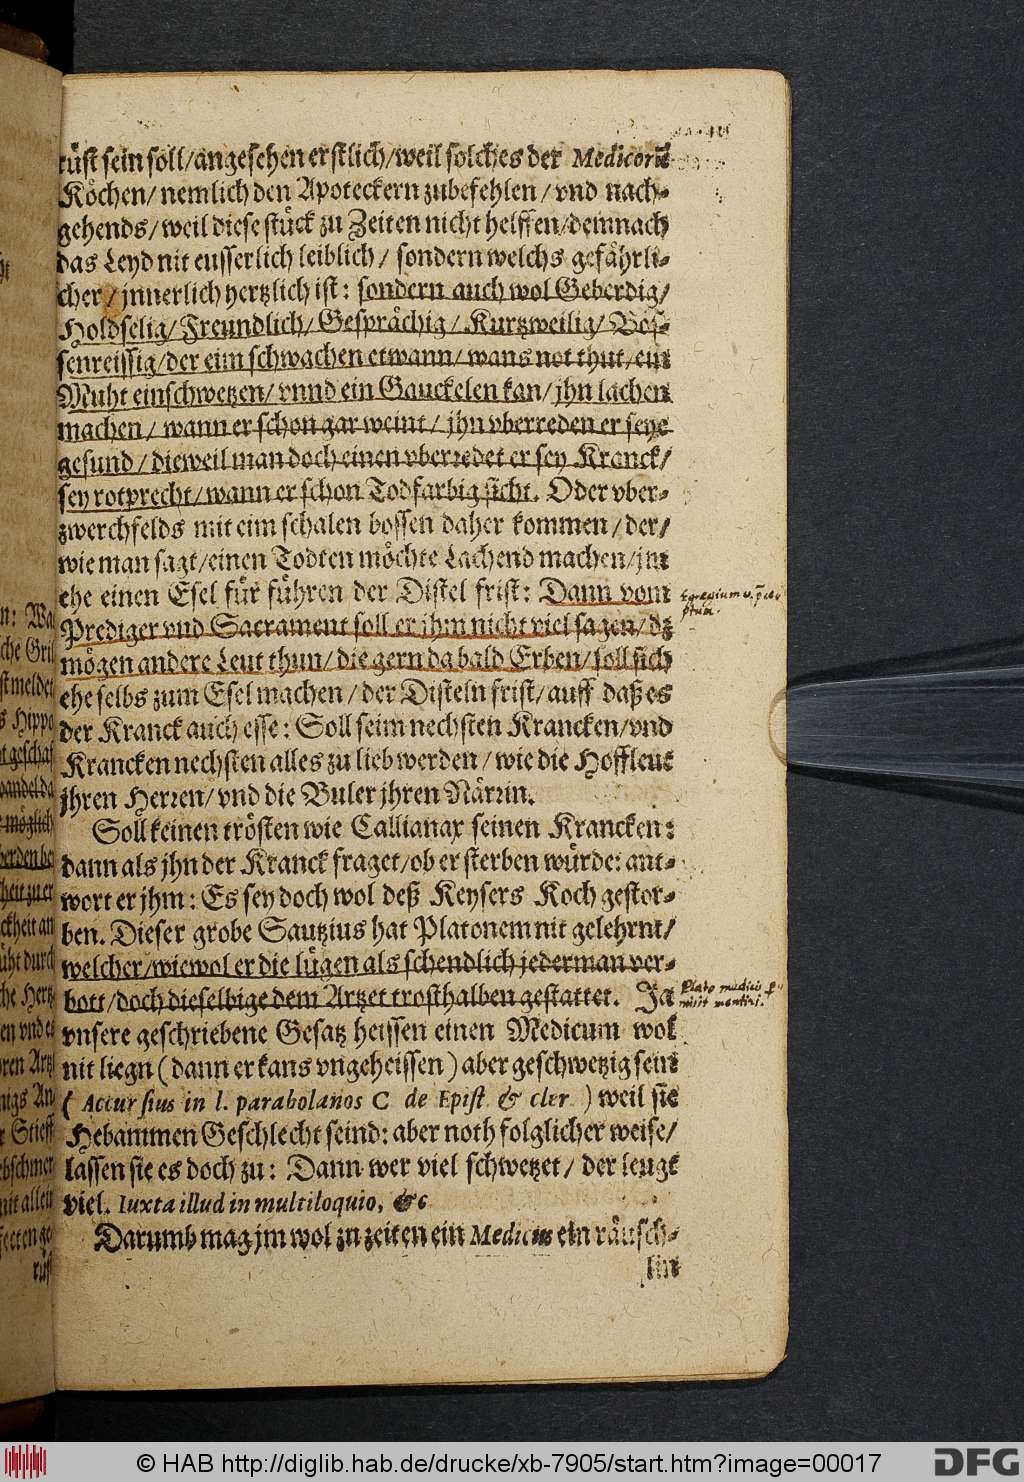 rüst sein soll/angesehen erstlich/weil solches der Medicorũ
Köchen/ nemlich den Apoteckern zubefehlen/ vnd nach-
gehends/ weil diese stück zu Zeiten nicht helffen/demnach
das Leyd nit eusserlich leiblich/ sondern welchs gefährli-
cher/ jnnerlich hertzlich ist: sondern auch wol Geberdig/
Holdselig/ Freundlich/ Gesprächig/ Kurtzweilig/ Bos-
senreissig/der eim schwachen etwann/ wans not thut/ein
Muht einschwetzen/ vnnd ein Gauckelen kan/ jhn lachen
machen/ wann er schon gar weint/ jhn vberreden er seye
gesund/ dieweil man doch einen vberredet er sey Kranck/
sey rotprecht/ wann er schon Todfarbig sicht. Oder vber-
zwerchfelds mit eim schalen bossen daher kommen/ der/
wie man sagt/einen Todten möchte Lachend machen/jm
ehe einen Esel für führen der Distel frist: Dann vom
Prediger vnd Sacrament soll er jhm nicht viel sagen/ dz
mögen andere Leut thun/ die gern da bald Erben/ soll sich
ehe selbs zum Esel machen/ der Disteln frist/ auff daß es
der Kranck auch esse: Soll seim nechsten Krancken/vnd
Krancken nechsten alles zu lieb werden/ wie die Hoffleut
jhren Herren/ vnd die Buler jhren Närrin.
Soll keinen trösten wie Callianax seinen Krancken:
dann als jhn der Kranck fraget/ob er sterben würde: ant-
wort er jhm: Es sey doch wol deß Keysers Koch gestor-
ben. Dieser grobe Sautzius hat Platonem nit gelehrnt/
welcher/wiewol er die lügen als schendlich jederman ver-
bott/doch dieselbige dem Artzet trosthalben gestattet. Ja
vnsere geschriebene Gesatz heissen einen Medicum wol
nit liegn (dann er kans vngeheissen) aber geschwetzig sein
( Accursius in l. parabolanos C de Epist & cler ) weil sie
Hebammen Geschlecht seind: aber noth folglicher weise/
lassen sie es doch zu: Dann wer viel schwetzet/ der leugt
viel. Iuxta illud in multiloquio, &c
Darumb mag jm wol zu zeiten ein Medicus ein räusch-
lin
Plato medicis p
misit mentiri.
© HAB http://diglib.hab.de/drucke/xb-7905/start.htm?image=00017
DFG